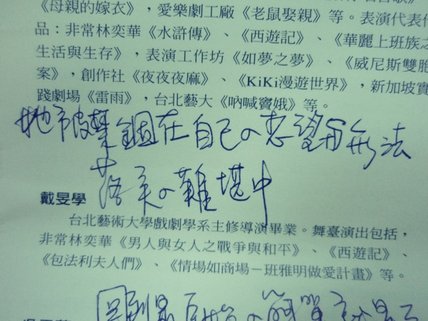 《母親的嫁衣》，愛樂劇工廠《老鼠娶親》等。表演代表作
品：非常林奕華《水滸傳》、《西遊記》、《華麗上班族之
生活與生存》，表演工作坊《如夢之夢》、《威尼斯雙胞
案》，創作社《夜夜夜麻》、《KiKi漫遊世界》，新加坡實
踐劇場《雷雨》，台北藝大《吶喊竇娥》等。
她被禁錮在自己の慾望無法
落實の難堪中
戴旻學
台北藝術大學戲劇學系主修導演畢業。舞臺演出包括，
非常林奕華《男人與女人之戰爭與和平》、《西遊記》、
《包法利夫人們》、《情場如商場－班雅明做愛計畫》等。